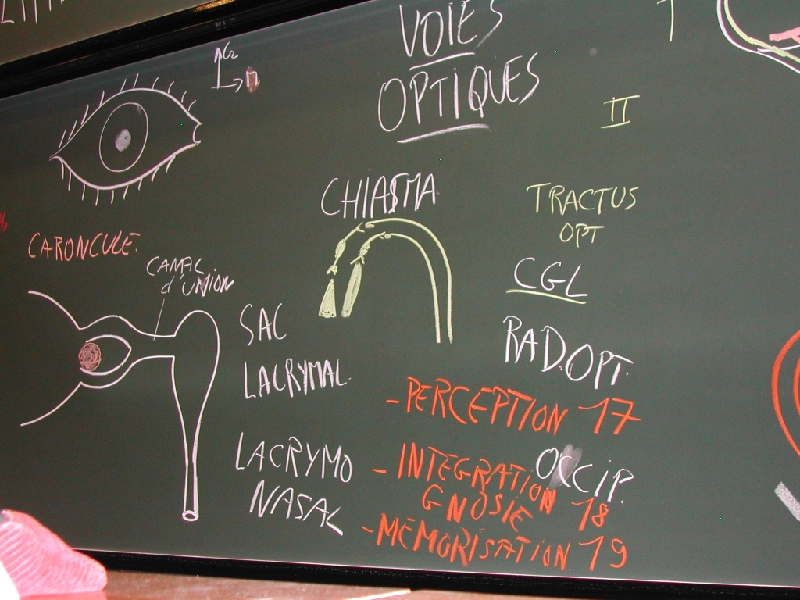 VOIES
OPTIQUES
II
CHIASMA
TRACTUS
OPT
CGL
RAD.OPT.
CARONCULE.
CANAL
d'UNION
SAC
LACRYMAL.
LACRYMO
NASAL
- PERCEPTION 17
OCCIP.
- INTEGRATION
GNOSIE 18
- MÉMORISATION 19